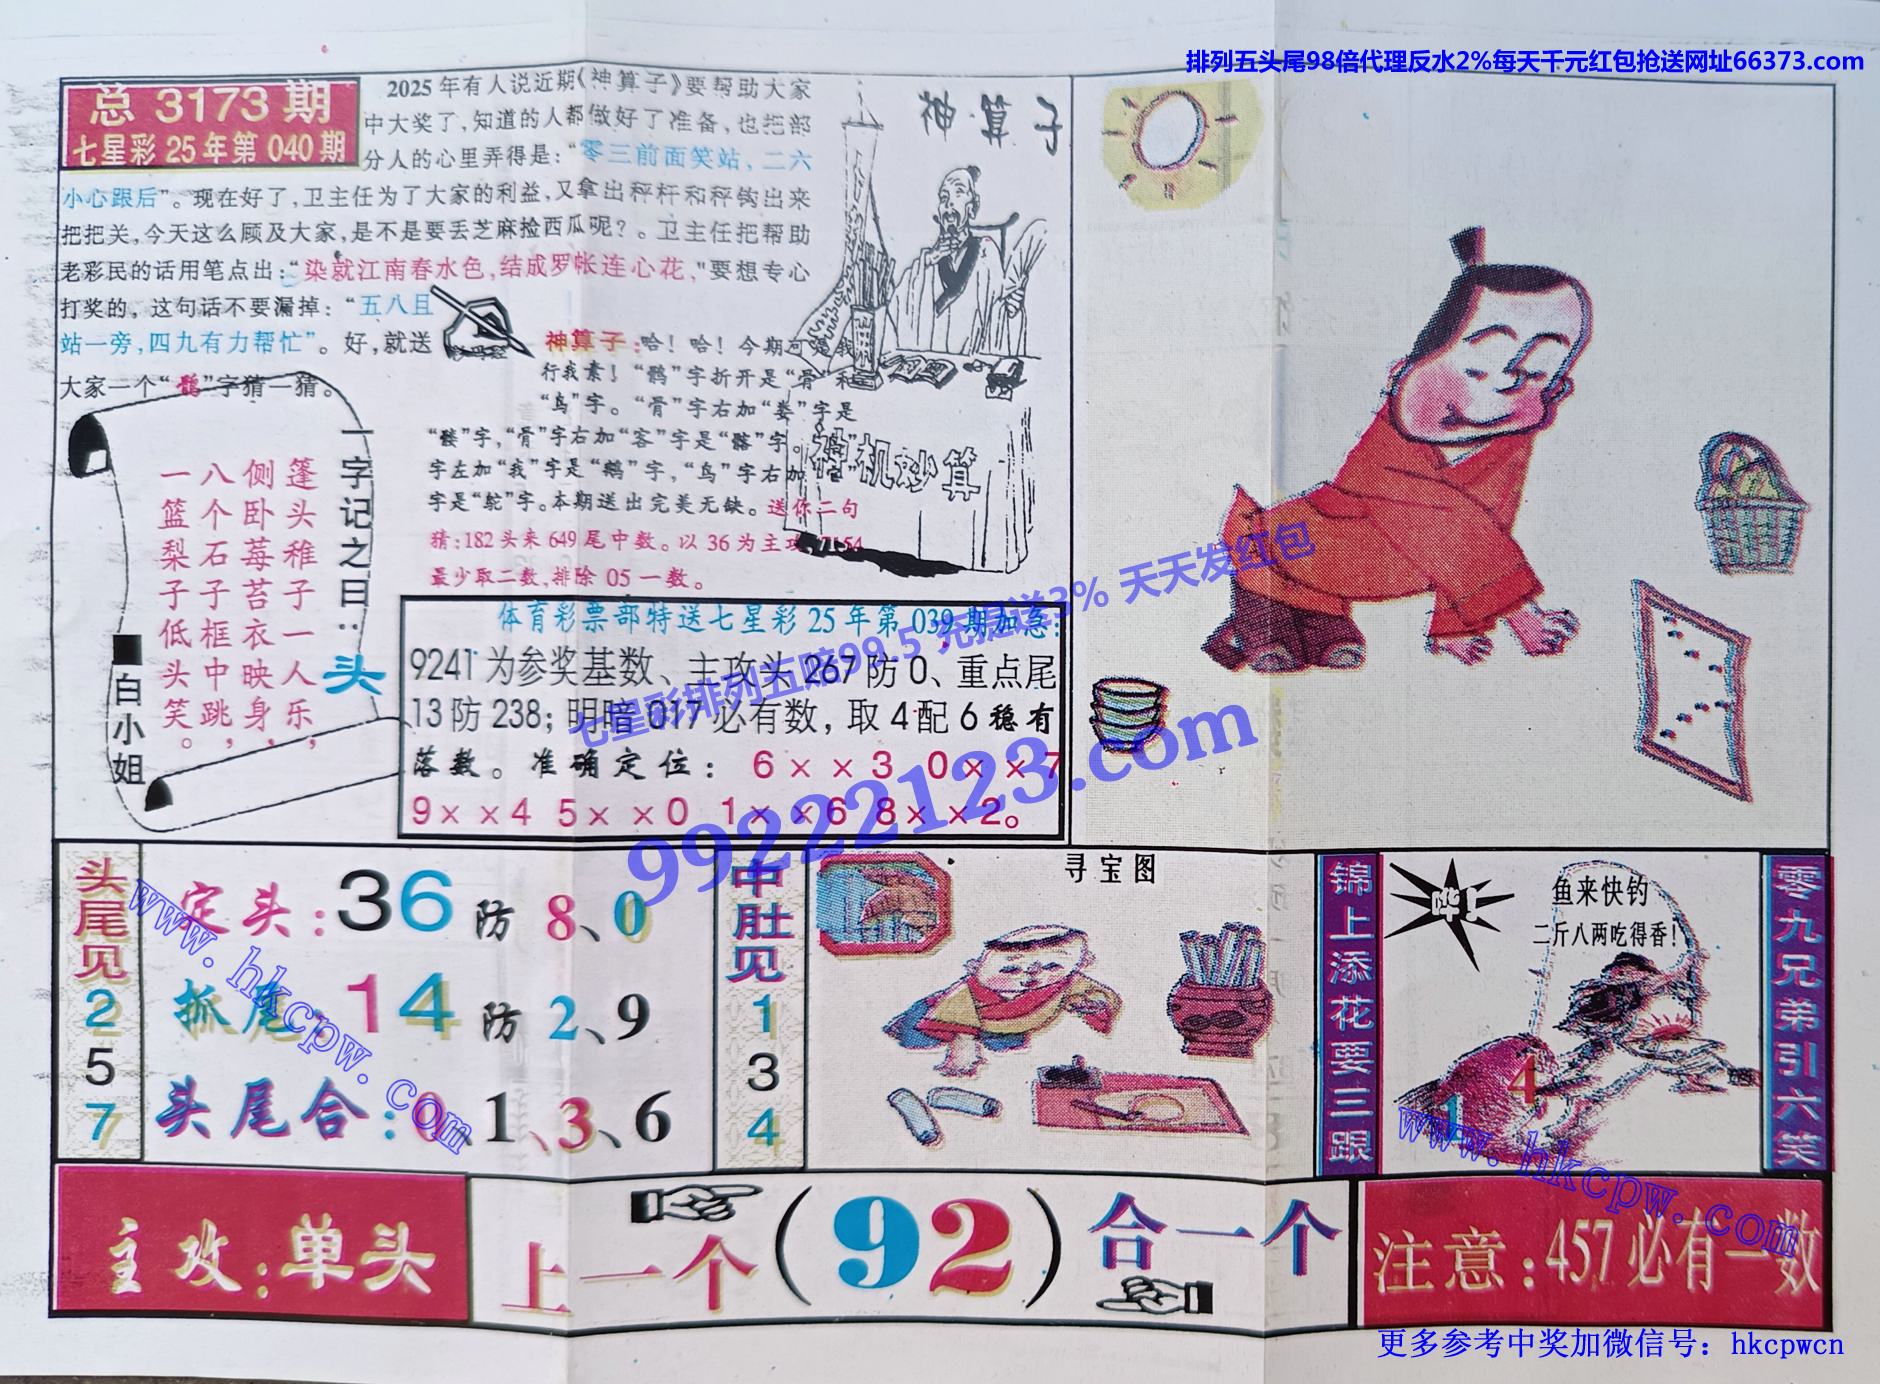 排列五头尾98倍代理反水2%每天千元红包抢送网址66373.com
总 3173 期
七星彩 25 年第 040 期
2025 年有人说近期《神算子》要帮助大家
中大奖了,知道的人都做好了准备，也把部
分人的心里弄得是:“零三前面笑站,二六
小心跟后”。现在好了,卫主任为了大家的利益,又拿出秤杆和秤钩出来
把把关,今天这么顾及大家,是不是要丢芝麻捡西瓜呢？。卫主任把帮助
老彩民的话用笔点出:“染就江南春水色,结成罗帐连心花,"要想专心
打奖的，这句话不要漏掉：“五八且
站一旁,四九有力帮忙”。好,就送
大家一个“鹘”字猜一猜。
神·算子
神算子:哈！哈！今期可是我
行我素！“鹘”字折开是“骨”和
“鸟”字。“骨”字右加“娄”字是
“髅”字,“骨”字右加“客”字是“髂”字。
字左加“我”字是“鹅”字，“鸟”字右加
字是“鸵”字。本期送出完美无缺。送你二句
猜:182 头来 649 尾中数。以 36 为主攻,7154
最少取二数,排除 05 一数。
神机妙算
一字记之曰:头
篷头稚子一人乐,
侧卧莓苔衣映身,
八个石子框中跳,
一篮梨子低头笑。
■白小姐
体育彩票部特送七星彩 25 年第 039 期加急:
9241 为参奖基数、主攻头 267 防 0、重点尾
13 防 238；明暗 017 必有数，取 4 配 6 稳有
落数。准确定位：6××3 0××7
9××4 5××0 1××6 8××2。
七星彩排列五赔99.5 充提送3% 天天发红包
99222123.com
头尾见257
定头:36 防 8、0
抓尾:14 防 2、9
头尾合:0、1、3、6
www.hkcpw.com
中肚见134
寻宝图
锦上添花要三跟
鱼来快钓
二斤八两吃得香!
1 4
零九兄弟引六笑
www.hkcpw.com
主攻:单头
上一个(92)合一个
注意:457必有一数
更多参考中奖加微信号：hkcpwcn